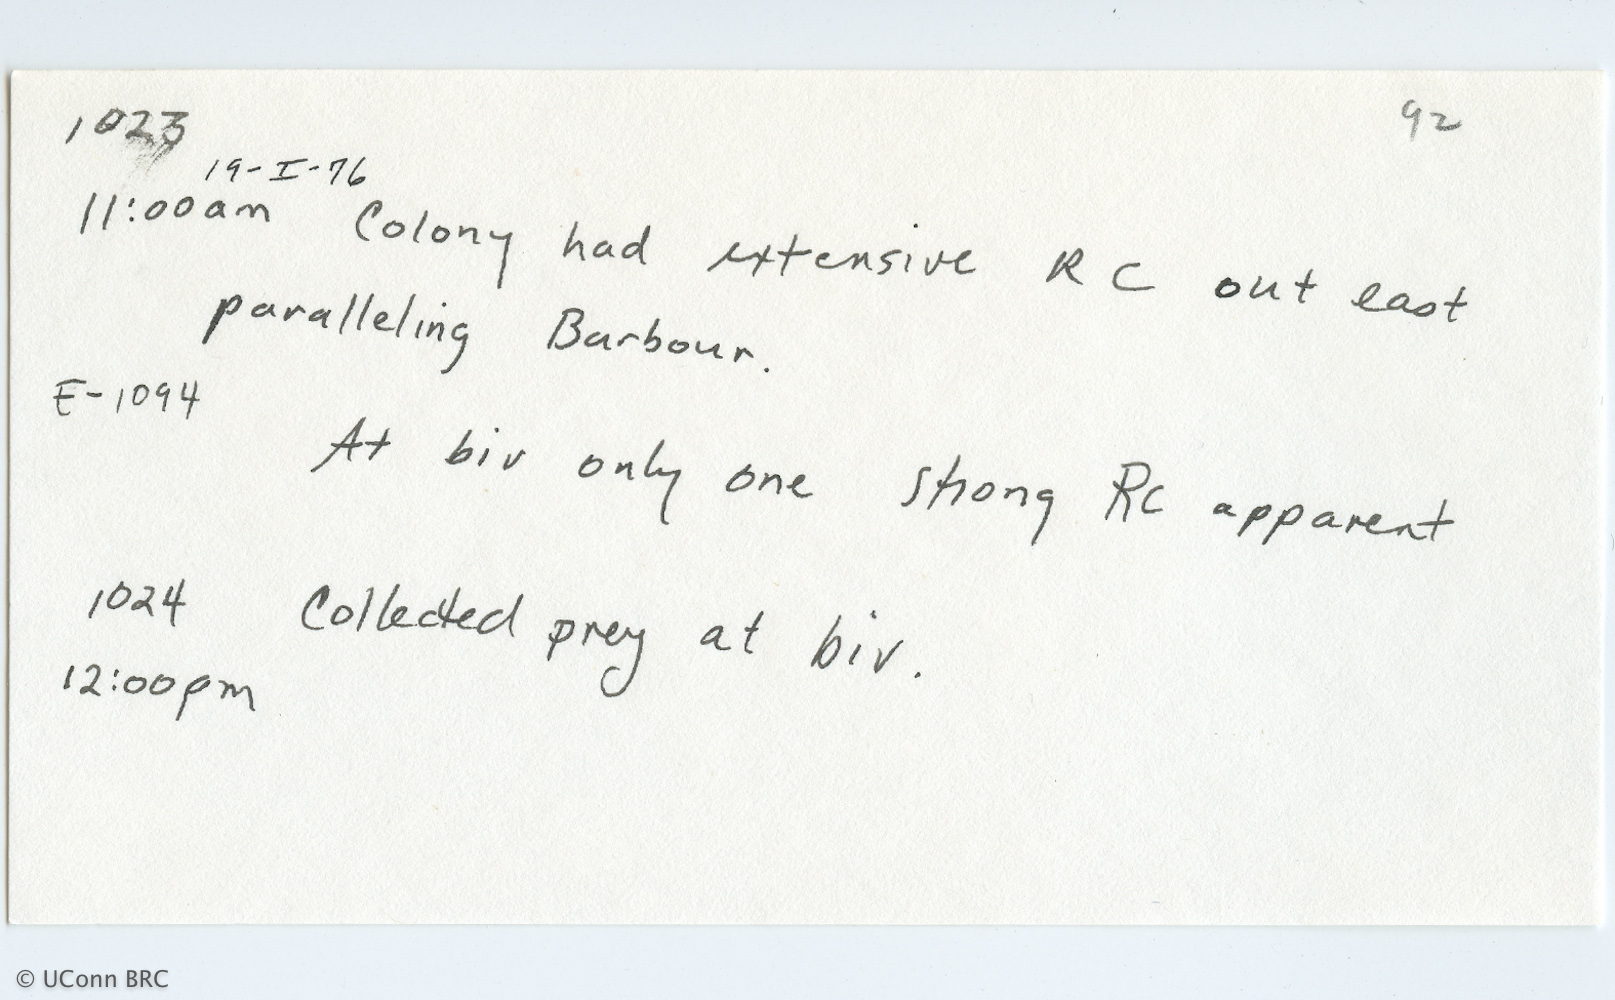 1023
92
19-I-76
11:00am Colony had extensive RC out east
paralleling Barbour.
E-1094
At biv only one strong RC apparent
1024 Collected prey at biv.
12:00pm
© UConn BRC